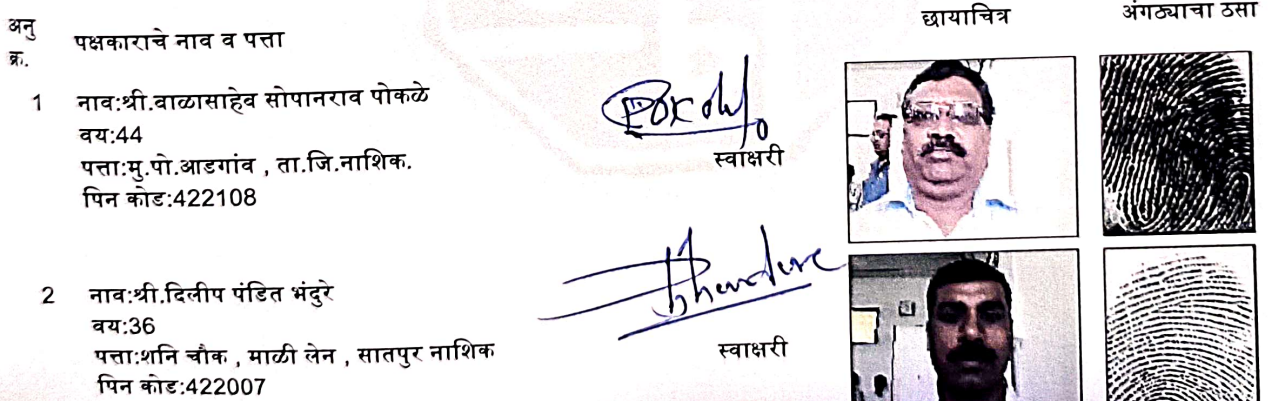 अनु क्र. पक्षकाराचे नाव व पत्ता छायाचित्र अंगठ्याचा ठसा
1 नाव:श्री.वाळासाहेव सोपानराव पोकळे
वय:44
पत्ता:मु.पो.आडगांव , ता.जि.नाशिक.
पिन कोड:422108
स्वाक्षरी
2 नाव:श्री.दिलीप पंडित भंदुरे
वय:36
पत्ता:शनि चौक , माळी लेन , सातपुर नाशिक
पिन कोड:422007
स्वाक्षरी